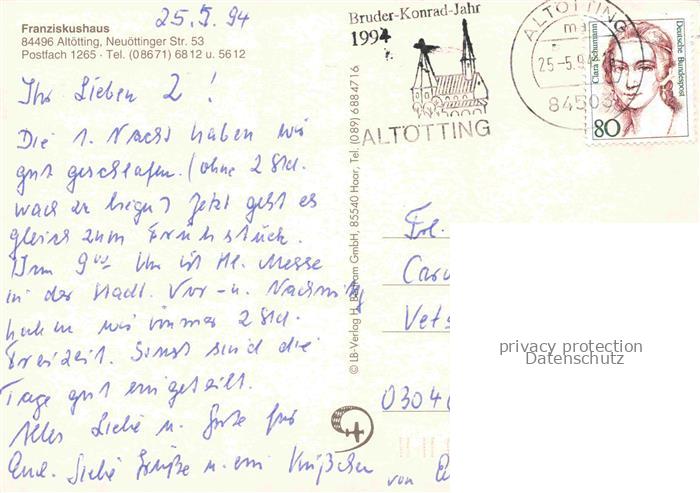 25.5.94
Franziskushaus
84496 Altötting, Neuöttinger Str. 53
Postfach 1265 · Tel. (08671) 6812 u. 5612
Ihr Lieben 2 !
Die 1. Nacht haben wir
gut geschlafen. (ohne 2 Std.
wach zu liegen) Jetzt geht es
gleich zum Frühstück.
Um 9 00 Uhr ist Hl. Messe
in der Stadt. Vor- u. Nachmittg
haben wir immer 2 Std.
Freizeit. Sonst sind die
Tage gut eingeteilt.
Alles Liebe u. Gute für
Euch. Liebe Grüße u. ein Küßchen
von
© LB-Verlag H. GmbH, 85540 Haar, Tel. (089) 6884716
Bruder-Konrad-Jahr
1994
ALTÖTTING
ALTÖTTING
25.-5.94
84503
Clara Schumann
Deutsche Bundespost
80
Frl.
Caro
Vets
0304
privacy protection
Datenschutz